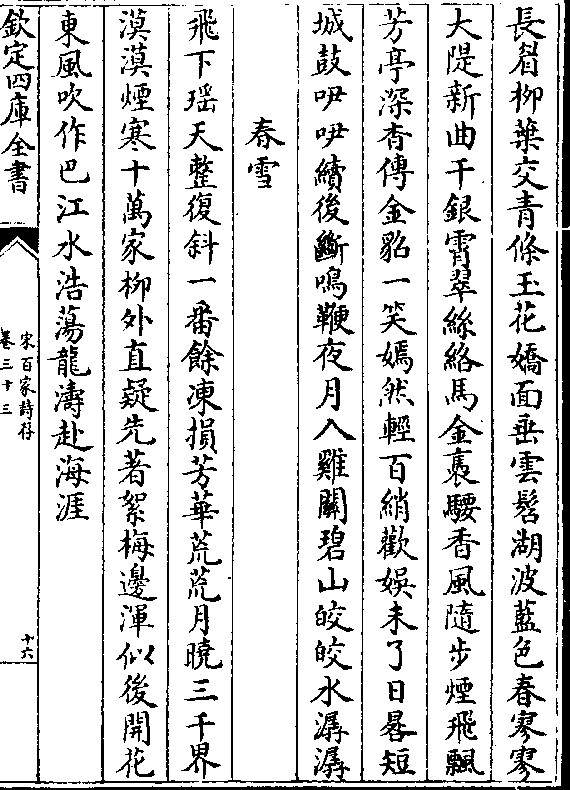 長眉柳葉交青條玉花嬌面垂雲髻湖波藍色春寥寥
大隄新曲干銀霄翠絲絡馬金褭騕香風隨步煙飛飄
芳亭深杳傳金貂一笑嫣然輕百綃歡娛未了日晷短
城鼓咿咿續後斷鳴鞭夜月入雞關碧山皎皎水潺潺
春雪
飛下瑶天整復斜一番餘凍損芳華荒荒月曉三千界
漠漠煙寒十萬家柳外直疑先著絮梅邊渾似後開花
東風吹作巴江水浩蕩龍濤赴海涯
欽定四庫全書
宋百家詩存
卷三十三
十六